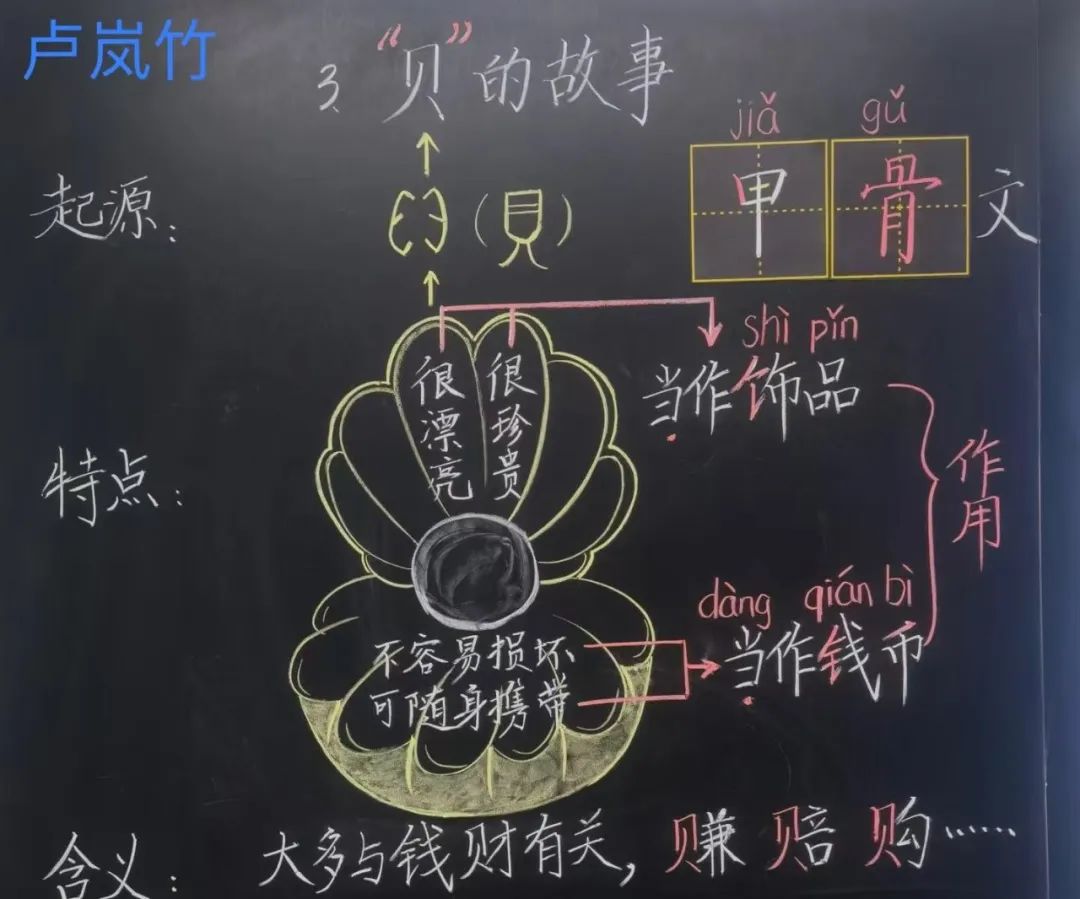 卢岚竹
3.“贝”的故事
jiǎ gǔ
甲骨文
起源：
（貝）
很漂亮
很珍贵
shì pǐn
当作饰品
特点：
作用
dàng qián bì
不容易损坏
可随身携带
当作钱币
含义：大多与钱财有关，赚 赔 购……